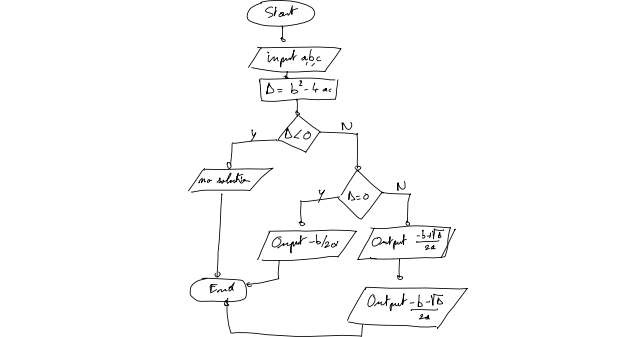 Start
input a,b,c
Δ = b² - 4ac
Δ<0
Y
N
no solution
Δ=0
Y
N
Output -b/2a
Output -b+√Δ/2a
End
Output -b-√Δ/2a